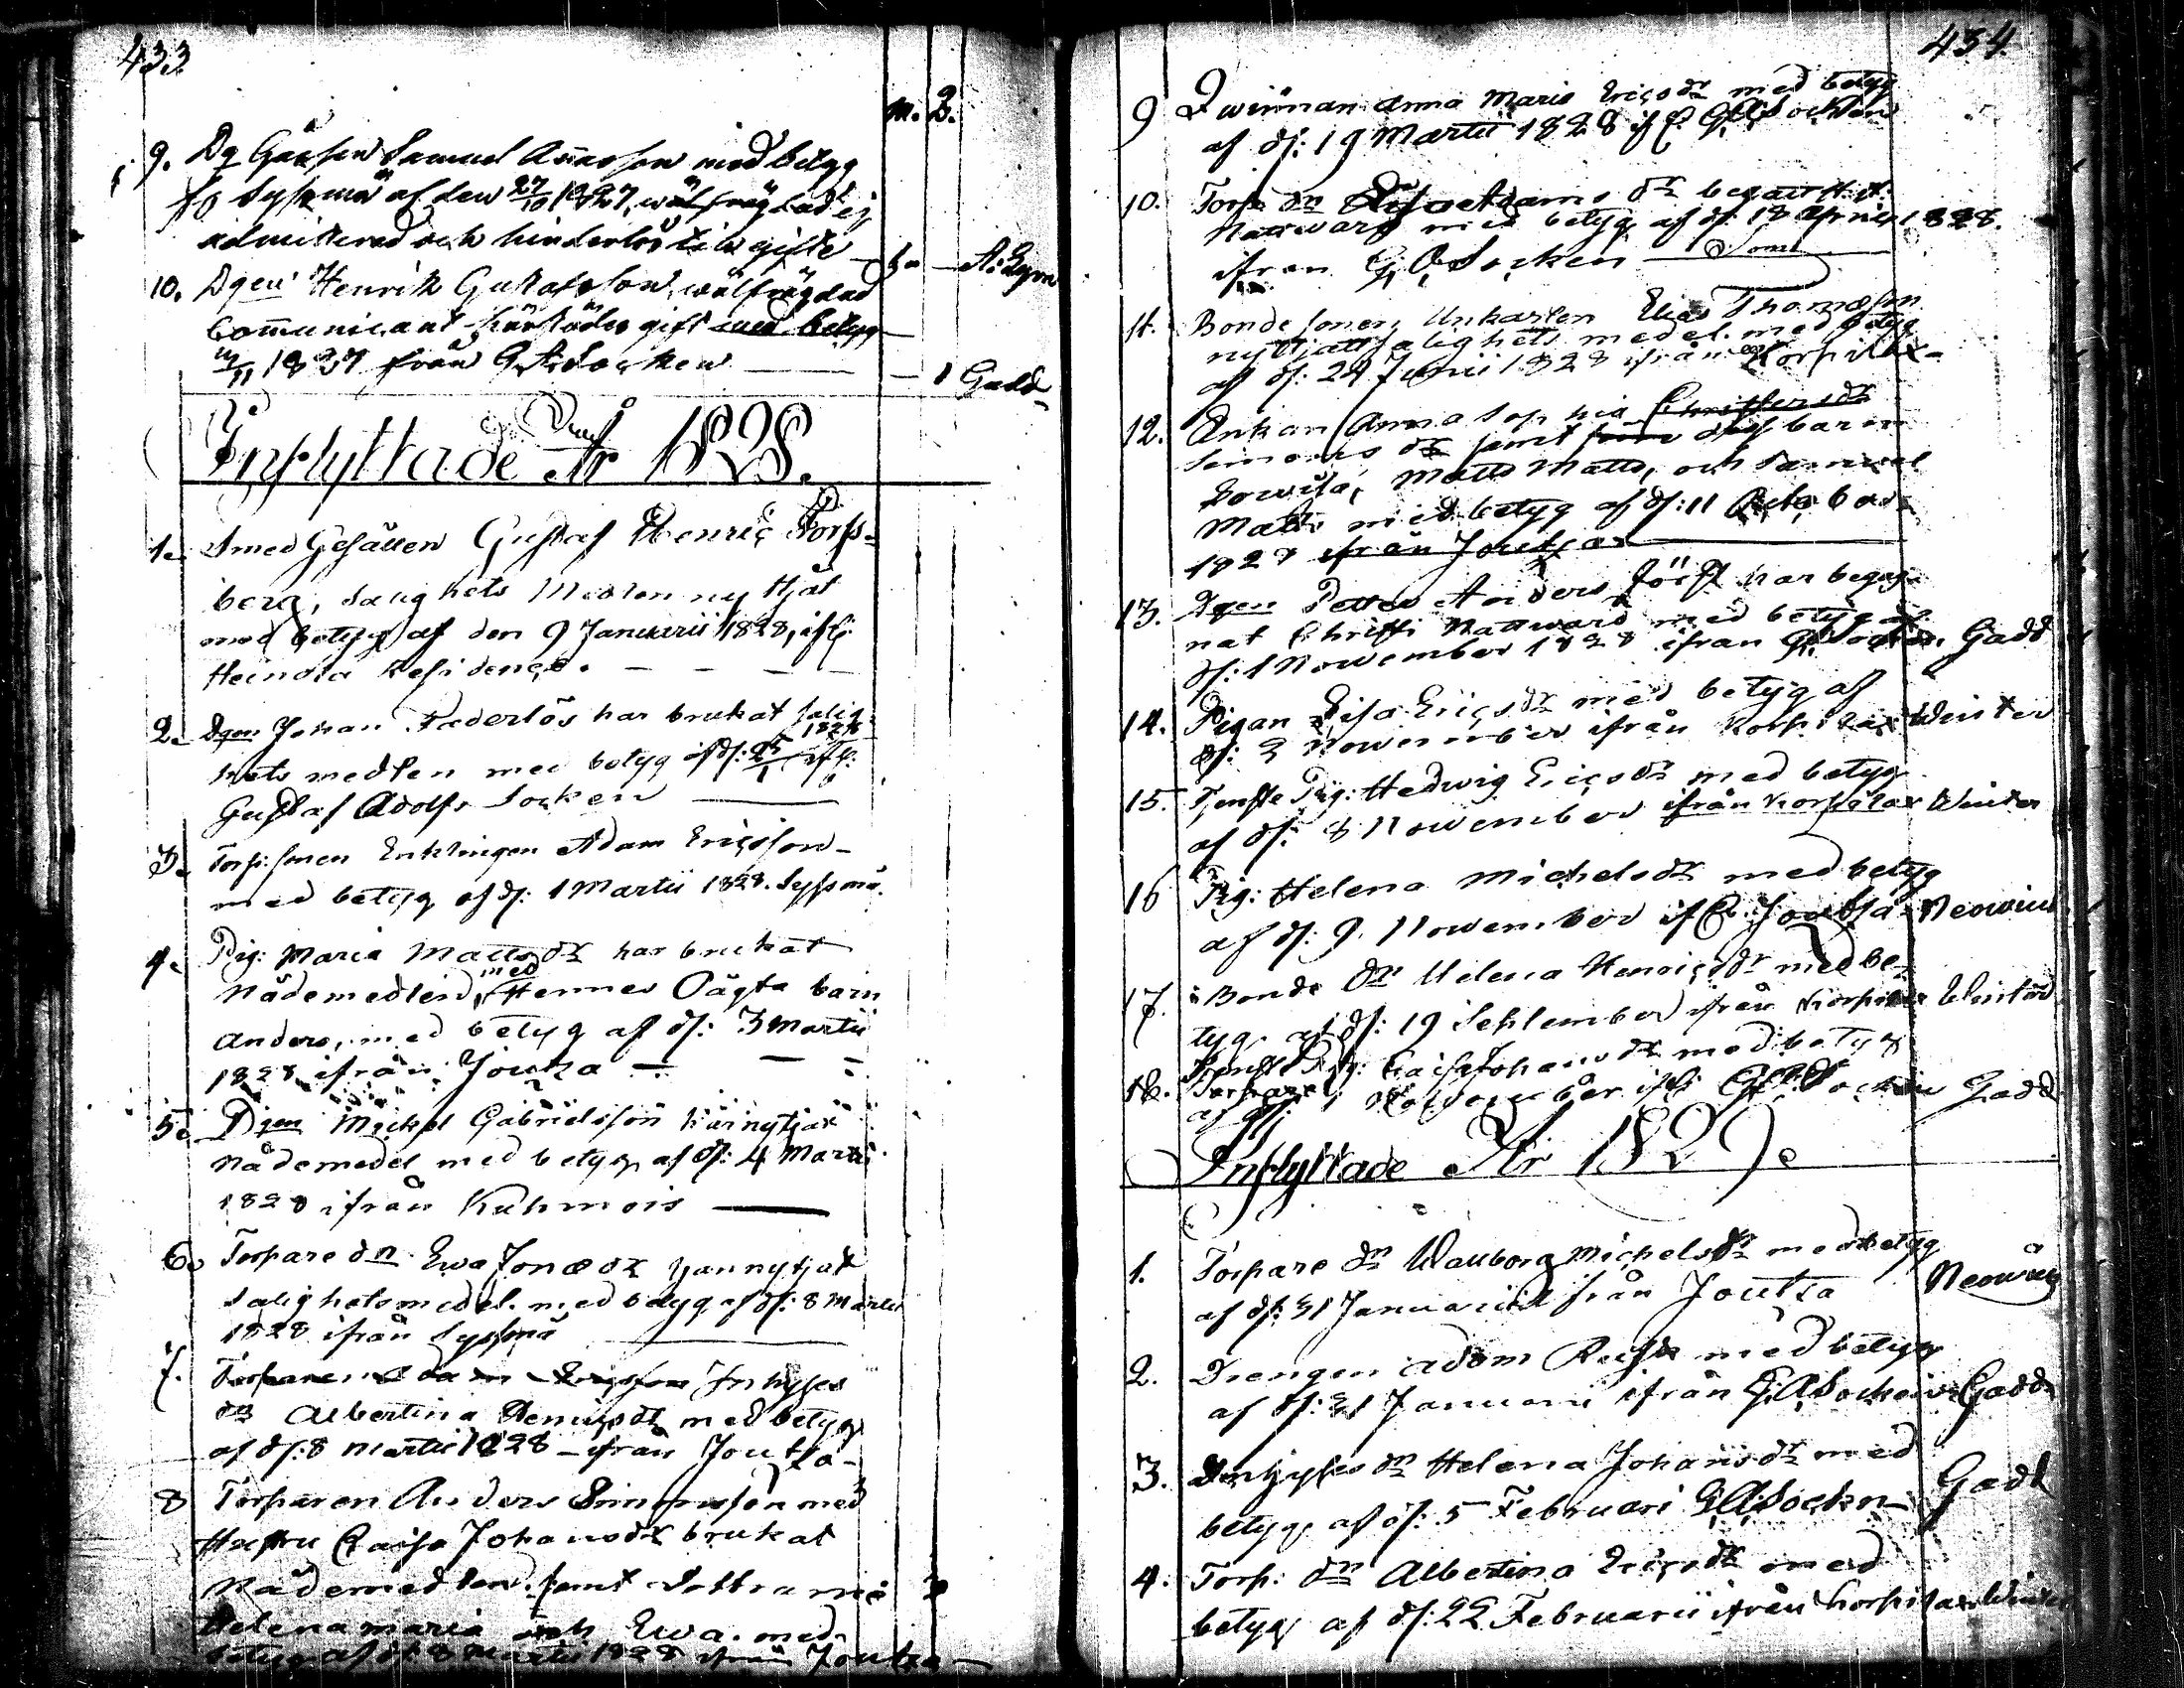 433
M. Q.
9. Dg Gåsen Samuel Annasson med betyg
fr Syssmä af den 27/10 1827, wälfräg dad ej
admitterad och hinderlös till gifte
10. Dgen Henrik Gustafsson, wälfrägdad
Communicant med betyg
11 1827 från G. A. Socken
1 Gadd
Inflyttade År 1828.
1. Smed Gesällen Gustaf Henric Forss-
berg, salighets Medlen nyttjat
med betyg af den 9 Januarii 1828, ifr:
Heinola Residence.
2. Dgen Johan Faderlös har brukat salig-
hets medlen med betyg af d: 25/1 1828 ifr:
Gustaf Adolfs Socken
3. Torp: sonen Enklingen Adam Ericsson
med betyg af d: 1 Martii 1828. Syssmä.
4. Pig: Maria Mattsdr har brukat
Nådemedlen, med Hennes Oägta barn
Anders, med betyg af d: 3 Martii
1828 ifrån Joutza
5. Dgen Mickel Gabrielsson har nytjat
Nådemedel med betyg af d: 4 Martii
1828 ifrån Kuhmois
6. Torpare dn Ewa Jonædr har nytjat
Salighetsmedel med betyg af d: 8 Martii
1828 ifrån Syssmä
7. Torparen Adam Ericsson Inhyses
dn Albertina Henricsdr med betyg
af d: 8 Martii 1828 ifrån Joutsa
8 Torparen Anders Simonsson med
Hustru Caisa Johansdr brukat
Nådemedlen. samt
Helena maria och Ewa. med
betyg af d: 8 Martii 1828 ifrån Joutza
434
9 Qwinnan Anna Maria Ericsdr med betyg
af d: 19 Martii 1828 ifr: G. A. Socken
10. Torp dn Lisa Adams dr begått H. H.
Nattward med betyg af d: 18 Aprill 1828.
ifrån G. A. Socken
11. Bonde sonen Unkarlen Elias Thomæsson
nyttjat salighets medel med betyg
af d: 24 Junii 1828 ifrån Korpilax
12. Enkan Anna Sophia Christersdr
Simonsdr samt barn
Lowisa, Matts Matts, och Samuel
Matts med betyg af d: 11 October
1828 ifrån Joutza
13. Dgen Petter Anders har begag-
nat Christi Nattward med betyg af
d: 1 Nowember 1828 ifrån G. Socken. Gadd
14. Pigan Lisa Ericsdr med betyg af
d: 2 Nowember ifrån Korpilax Winter
15. Tjenste Pig: Hedwig Ericsdr med betyg
af d: 8 Nowember ifrån Korpilax Winter
16 Pig: Helena Michelsdr med betyg
af d: 9. Nowember ifr: Joutsa Neowius
17. Bonde dn Helena Henricsdr med be-
tyg af d: 19 September ifrån Korpilax Winter
18. Tjenste Pig: Caisa Johansdr med betyg
af d: 1 Nowember ifr: G. A. Socken Gadd
Inflyttade År 1829.
1. Torpare dn Walborg Michelsdr med betyg
af d: 31 Januarii ifrån Joutza Neowius
2. Drengen Adam med betyg
af d: 31 Januarii ifrån G. A. Socken Gadd
3. Inhyses dn Helena Johansdr med
betyg af d: 5 Februari G. A. Sockn Gadd
4. Torp: dn Albertina Ericsdr med
betyg af d: 22 Februarii ifrån Korpilax Winter